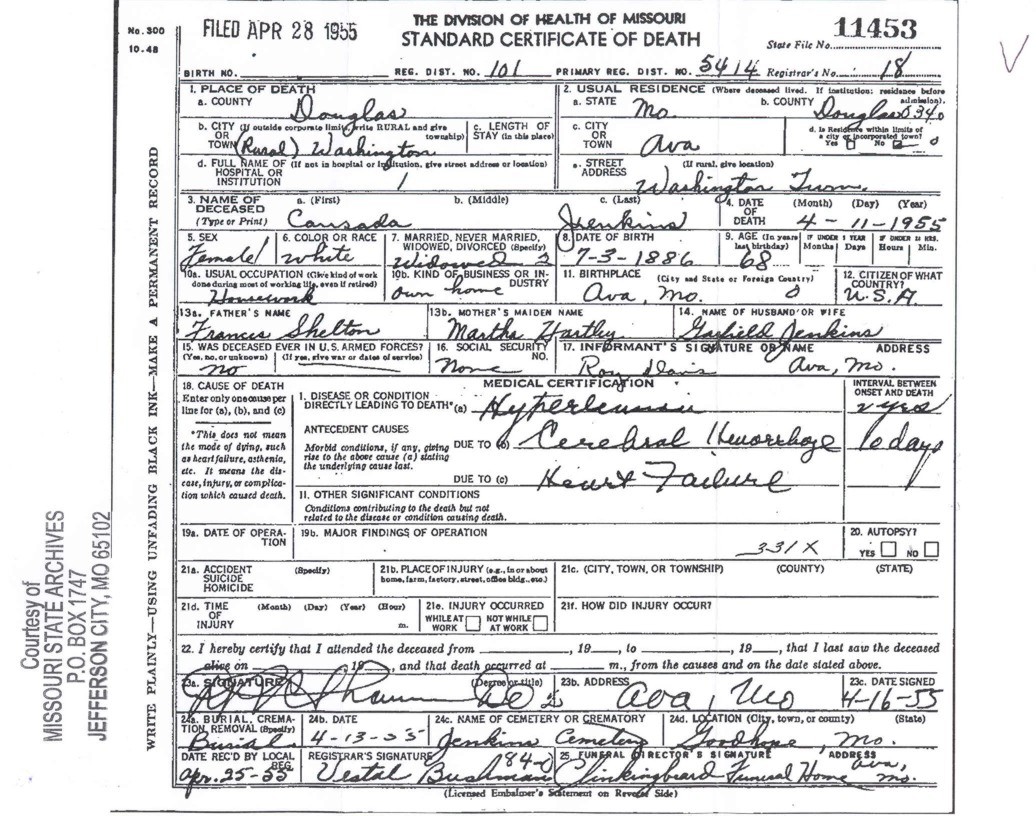 No. 300
10-48
FILED APR 28 1955
THE DIVISION OF HEALTH OF MISSOURI
STANDARD CERTIFICATE OF DEATH
11453
State File No.
BIRTH NO. REG. DIST. NO. 101 PRIMARY REG. DIST. NO. 5414 Registrar's No. 18
1. PLACE OF DEATH
a. COUNTY Douglas
2. USUAL RESIDENCE (Where deceased lived. If institution: residence before admission).
a. STATE Mo. b. COUNTY Douglas 0340
b. CITY (If outside corporate limits, write RURAL and give township)
OR
TOWN (Rural) Washington
c. LENGTH OF STAY (in this place)
c. CITY OR TOWN Ava
d. Is Residence within limits of a city or incorporated town?
Yes No 0
d. FULL NAME OF (If not in hospital or institution, give street address or location)
HOSPITAL OR
INSTITUTION
e. STREET ADDRESS (If rural, give location)
Washington Twn.
3. NAME OF DECEASED (Type or Print)
a. (First) b. (Middle) c. (Last)
Jenkins
4. DATE OF DEATH (Month) (Day) (Year)
4-11-1955
5. SEX
Female
6. COLOR OR RACE
White
7. MARRIED, NEVER MARRIED, WIDOWED, DIVORCED (Specify)
Widowed 2
8. DATE OF BIRTH
7-3-1886
9. AGE (In years last birthday)
68
IF UNDER 1 YEAR
Months Days
IF UNDER 24 HRS.
Hours Min.
10a. USUAL OCCUPATION (Give kind of work done during most of working life, even if retired)
Housework
10b. KIND OF BUSINESS OR INDUSTRY
own home
11. BIRTHPLACE (City and State or Foreign Country)
Ava, Mo. 0
12. CITIZEN OF WHAT COUNTRY?
U.S.A.
13a. FATHER'S NAME
Frances Shelton
13b. MOTHER'S MAIDEN NAME
Martha Hartley
14. NAME OF HUSBAND OR WIFE
Garfield Jenkins
15. WAS DECEASED EVER IN U.S. ARMED FORCES?
(Yes, no, or unknown) (If yes, give war or dates of service)
no
16. SOCIAL SECURITY NO.
None
17. INFORMANT'S SIGNATURE OR NAME ADDRESS
Roy Davis Ava, Mo.
18. CAUSE OF DEATH
Enter only one cause per line for (a), (b), and (c)
*This does not mean the mode of dying, such as heart failure, asthenia, etc. It means the disease, injury, or complication which caused death.
MEDICAL CERTIFICATION
INTERVAL BETWEEN ONSET AND DEATH
I. DISEASE OR CONDITION DIRECTLY LEADING TO DEATH* (a)
2 yrs
ANTECEDENT CAUSES
Morbid conditions, if any, giving rise to the above cause (a) stating the underlying cause last.
DUE TO (b) Cerebral Hemorrhage 10 days
DUE TO (c) Heart Failure
II. OTHER SIGNIFICANT CONDITIONS
Conditions contributing to the death but not related to the disease or condition causing death.
19a. DATE OF OPERATION
19b. MAJOR FINDINGS OF OPERATION
331X
20. AUTOPSY?
YES NO
21a. ACCIDENT SUICIDE HOMICIDE (Specify)
21b. PLACE OF INJURY (e.g., in or about home, farm, factory, street, office bldg., etc.)
21c. (CITY, TOWN, OR TOWNSHIP) (COUNTY) (STATE)
21d. TIME OF INJURY (Month) (Day) (Year) (Hour) m.
21e. INJURY OCCURRED
WHILE AT WORK NOT WHILE AT WORK
21f. HOW DID INJURY OCCUR?
22. I hereby certify that I attended the deceased from , 19 , to , 19 , that I last saw the deceased
alive on , 19 , and that death occurred at m., from the causes and on the date stated above.
23a. SIGNATURE (Degree or title)
23b. ADDRESS
Ava, Mo
23c. DATE SIGNED
4-16-55
24a. BURIAL, CREMATION, REMOVAL (Specify)
Burial
24b. DATE
4-13-55
24c. NAME OF CEMETERY OR CREMATORY
Jenkins Cemetery
24d. LOCATION (City, town, or county) (State)
Goodhope, Mo.
DATE REC'D BY LOCAL REG.
Apr. 25-55
REGISTRAR'S SIGNATURE
Vestal Bushman 84-0
25. FUNERAL DIRECTOR'S SIGNATURE ADDRESS
Clinkingbeard Funeral Home Ava, Mo.
(Licensed Embalmer's Statement on Reverse Side)
WRITE PLAINLY—USING UNFADING BLACK INK—MAKE A PERMANENT RECORD
Courtesy of
MISSOURI STATE ARCHIVES
P.O. BOX 1747
JEFFERSON CITY, MO 65102